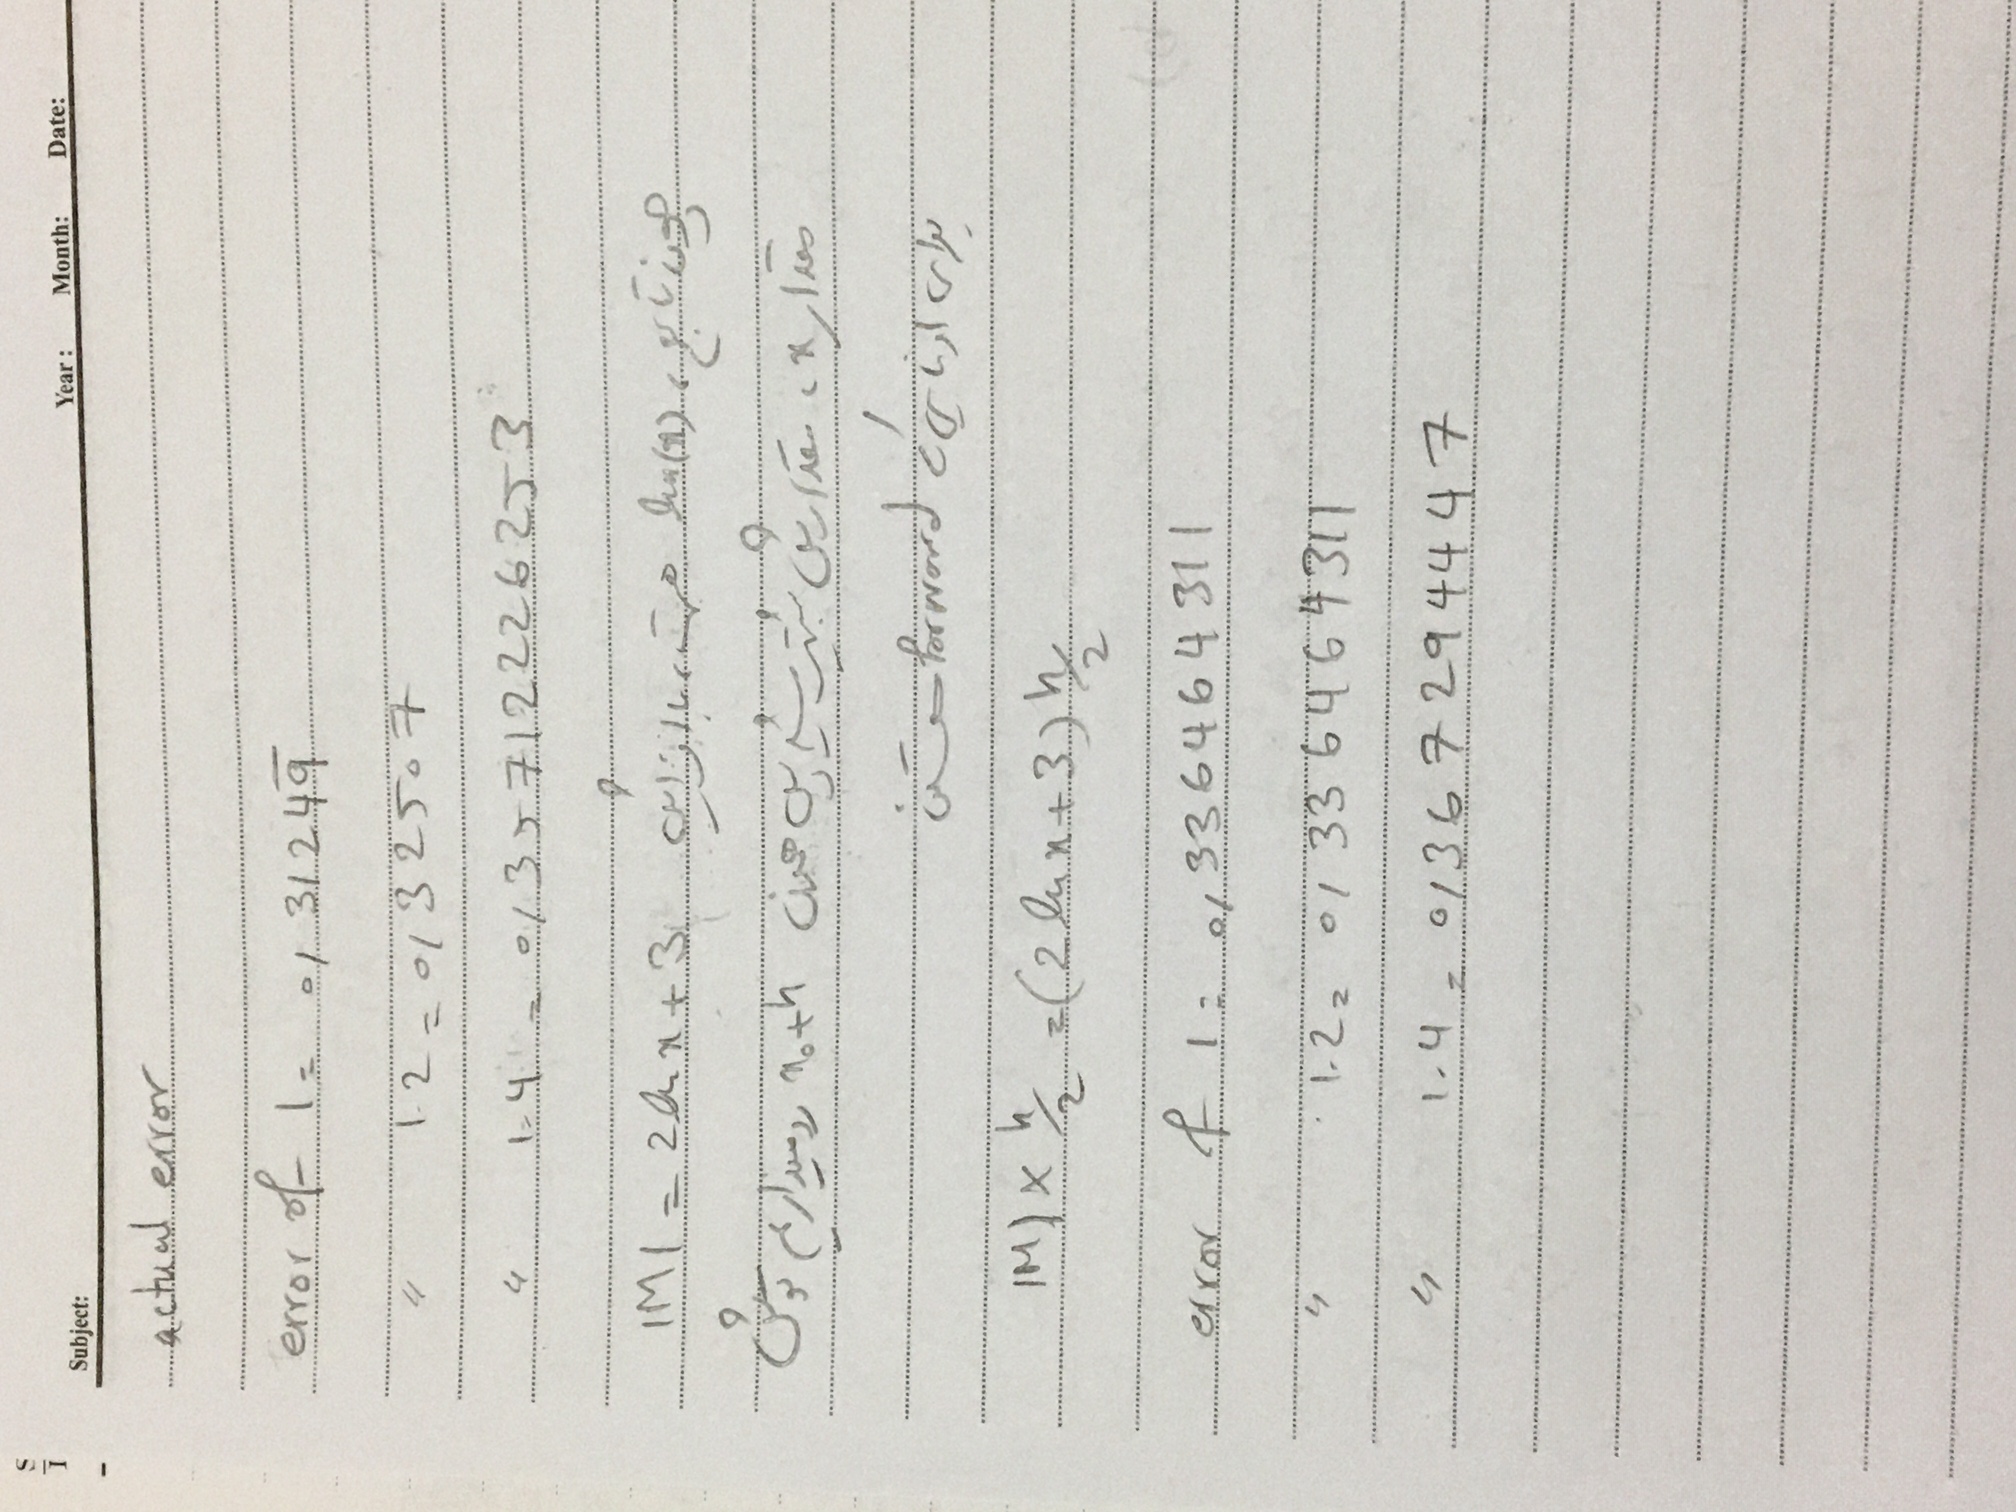 S
I
Subject: Year : Month: Date:
actual error
error of 1 = 0/31249̅
" 1.2 = 0/32507
" 1.4 = 0/35712226253
|M| = 2 ln x + 3 چون تابع، ln(x) هست، با افزایش
مقدار x، مقدارش بیشتر میشه پس همون x₀+h رو میذاریم توش
برای اونایی که forward هستن
|M| × h/2 = (2 ln x + 3) h/2
error of 1 = 0/336464311
" 1.2 = 0/336464311
" 1.4 = 0/367294447